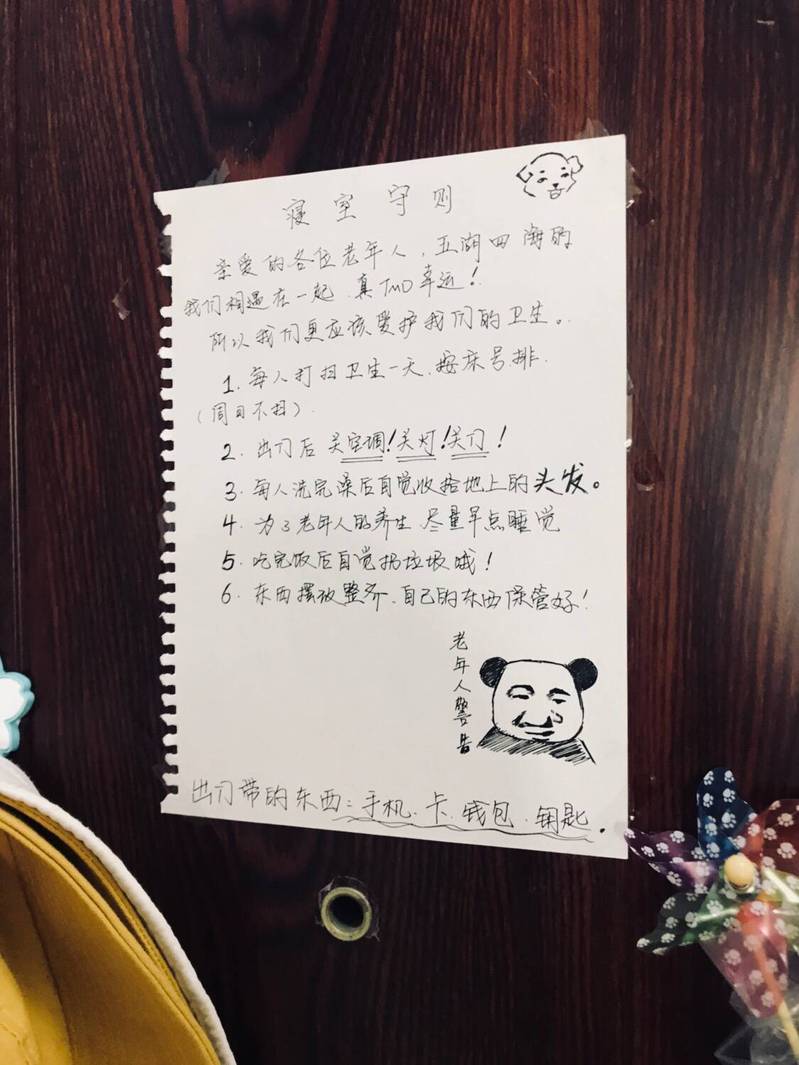 寝室守则
亲爱的各位老年人，五湖四海的
我们相遇在一起，真TMD幸运！
所以我们更应该爱护我们的卫生。
1. 每人打扫卫生一天，按床号排.
（周日不扫）.
2. 出门后 关空调！关灯！关门！
3. 每人洗完澡后自觉收拾地上的头发。
4. 为了老年人的养生，尽量早点睡觉
5. 吃完饭后自觉扔垃圾哦！
6. 东西摆放整齐、自己的东西保管好！
老年人警告
出门带的东西：手机、卡、钱包、钥匙.